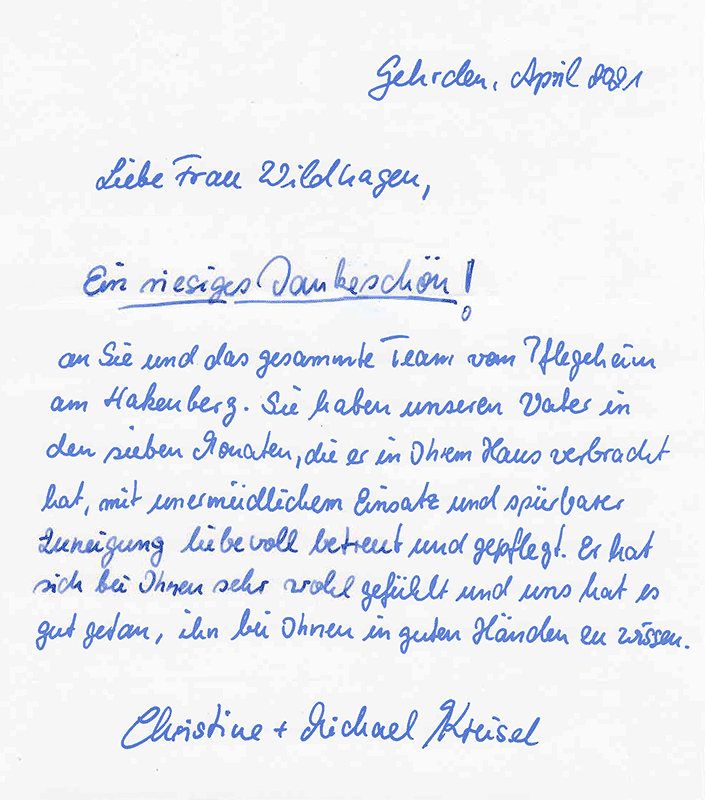 Gehrden, April 2021
Liebe Frau Wildhagen,
Ein riesiges Dankeschön!
an Sie und das gesammte Team vom Pflegeheim
am Hakenberg. Sie haben unseren Vater in
den sieben Monaten, die er in Ihrem Haus verbracht
hat, mit unermüdlichem Einsatz und spürbarer
Zuneigung liebevoll betreut und gepflegt. Er hat
sich bei Ihnen sehr wohl gefühlt und uns hat es
gut getan, ihn bei Ihnen in guten Händen zu wissen.
Christine + Michael Kreisel